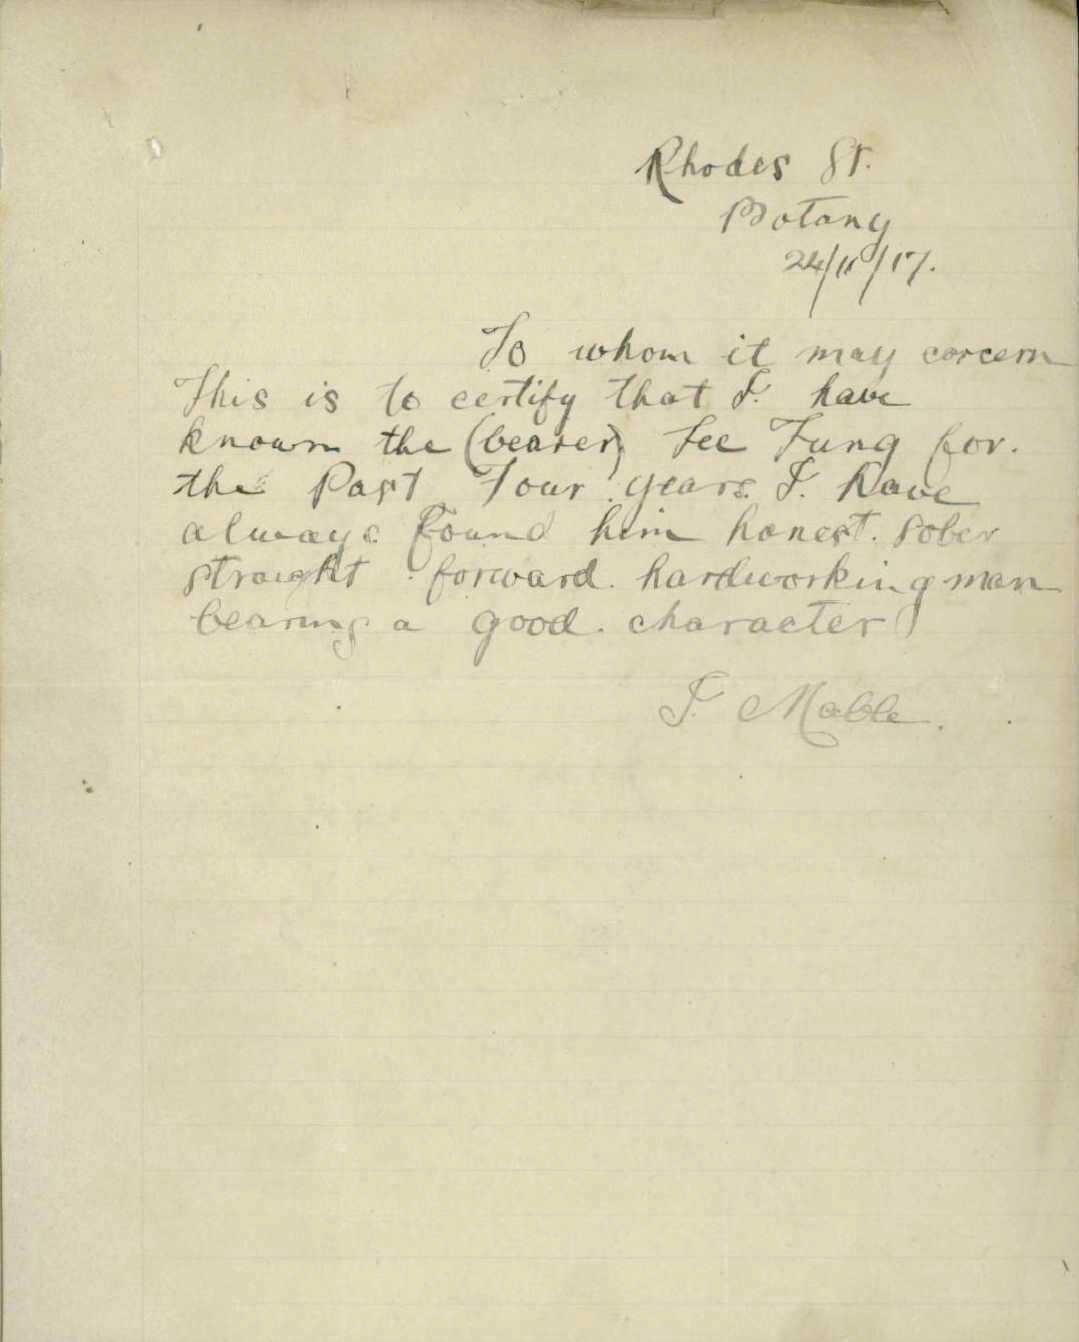 Rhodes St.
Botany
24/11/17.
To whom it may concern
This is to certify that I. have
known the (bearer) Lee Fung for.
the Past Four years I. have
always found him honest. sober
straight forward. hardworking man
bearing a good. character
J. Mable.